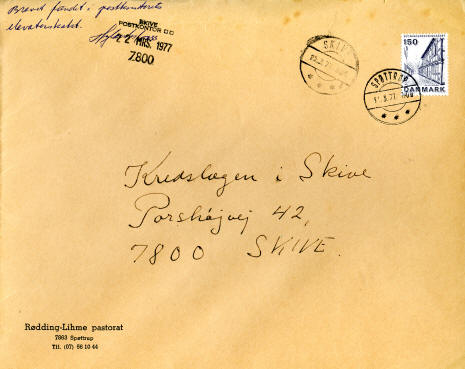 Brevet fundet i postkontorets
elevatorskakt.
SKIVE
POSTKONTOR
22 MRS. 1977
7800
SKIVE
150
DANMARK
SPØTTRUP
Kredslægen i Skive
Porshøjvej 42,
7800 SKIVE.
Rødding-Lihme pastorat
7863 Spøttrup
Tlf. (07) 56 10 44